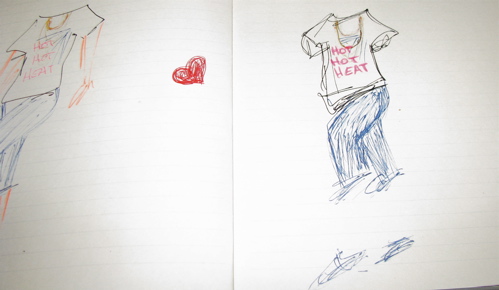 HOT
HOT
HEAT
HOT
HOT
HEAT